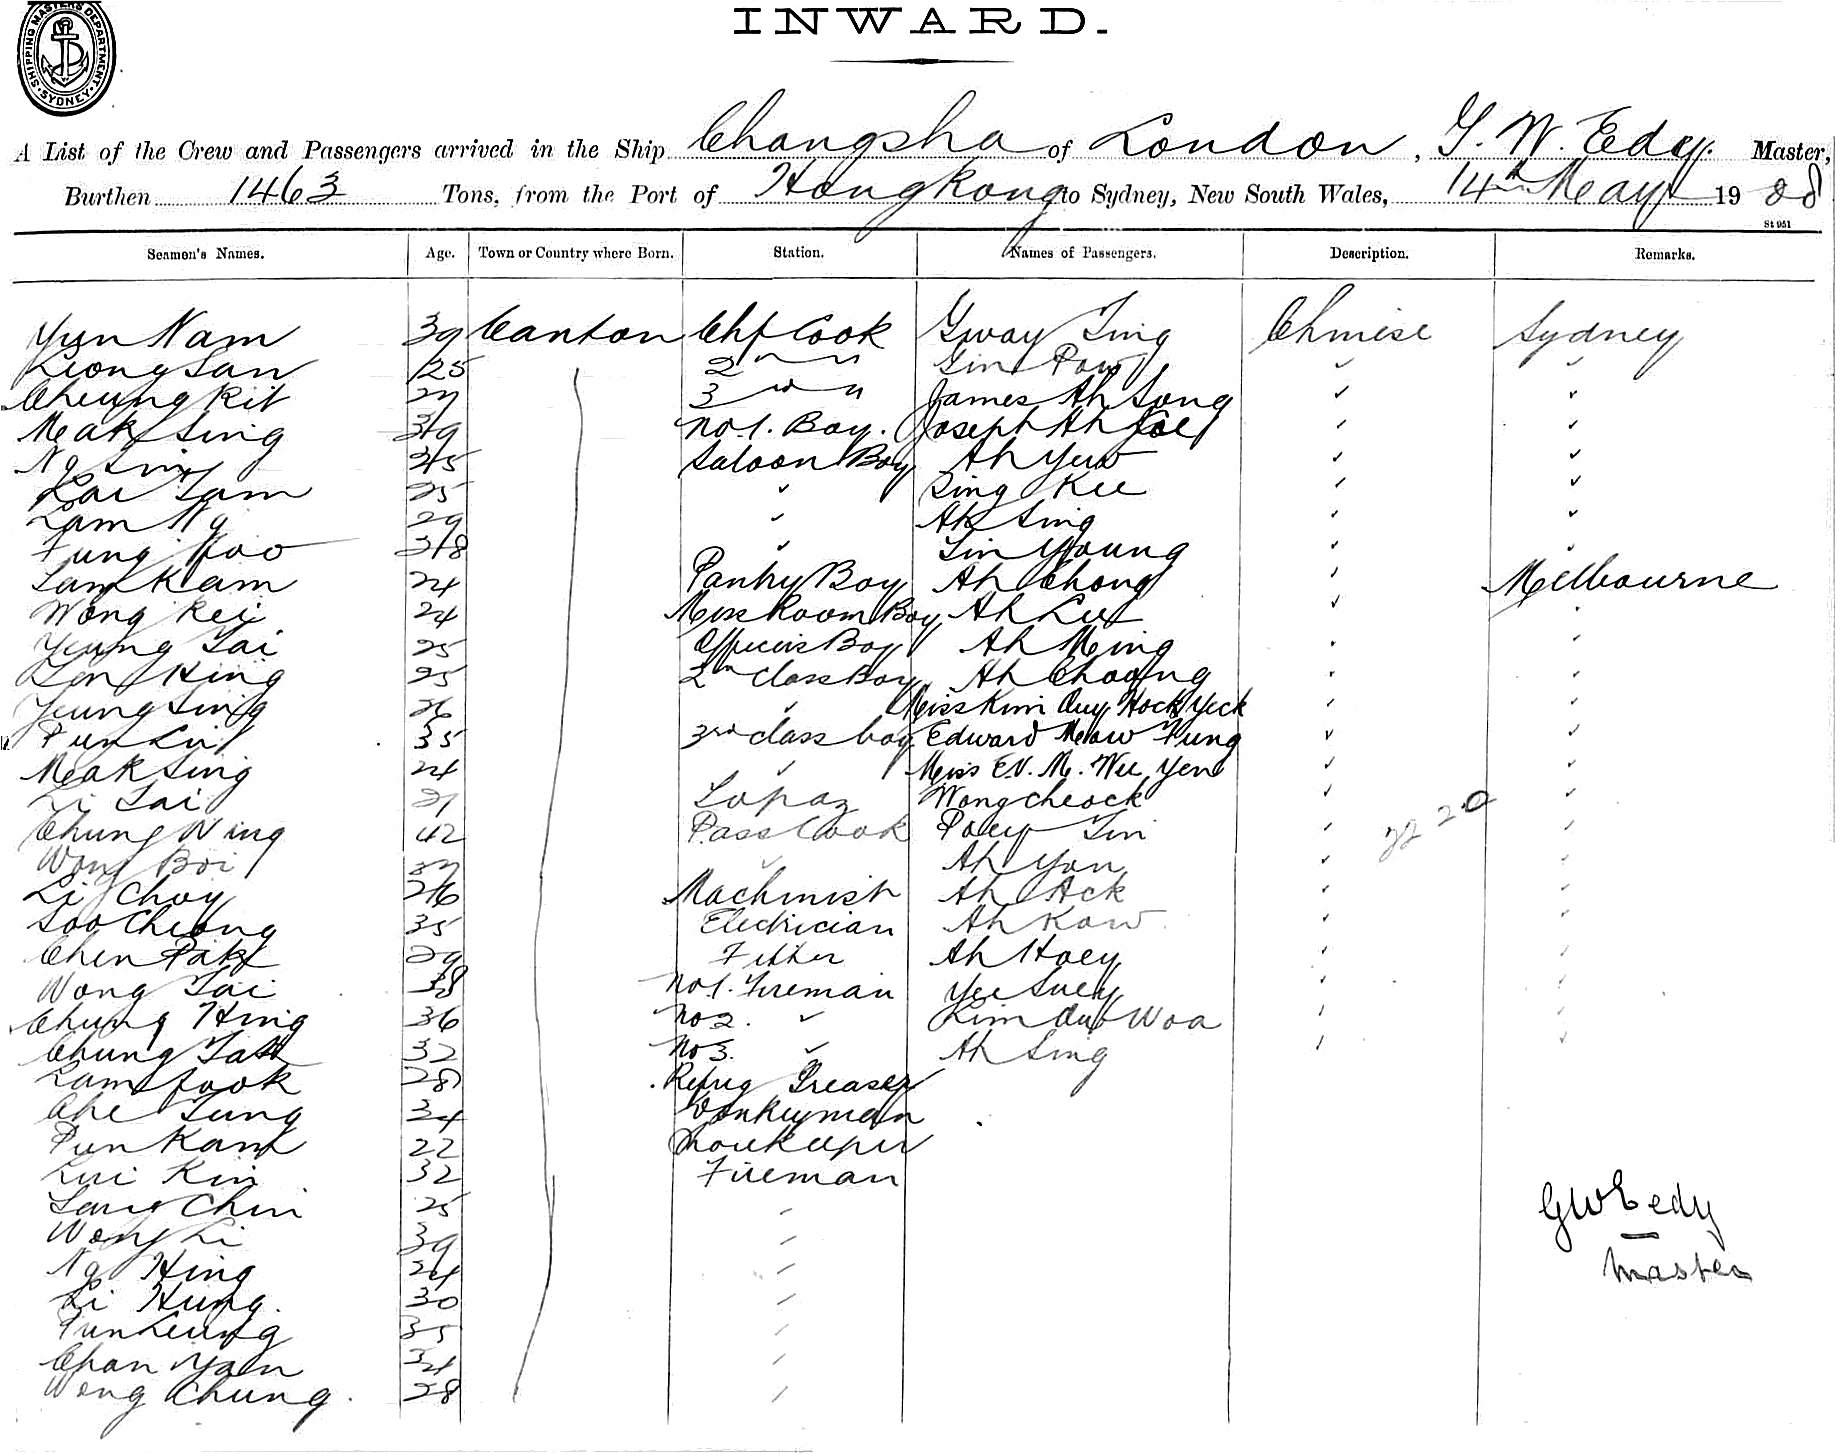 SHIPPING MASTERS DEPARTMENT SYDNEY
INWARD.
A List of the Crew and Passengers arrived in the Ship Changsha of London, G. W. Edy. Master,
Burthen 1463 Tons, from the Port of Hongkong to Sydney, New South Wales, 14th May 1908
St 951
Seamen's Names. Age. Town or Country where Born. Station. Names of Passengers. Description. Remarks.
Yun Nam 39 Canton Chf Cook Gway Ting Chinese Sydney
Leong San 25 2 " " Gin Pow
Cheung Kit 27 3 " " James Ah Song
Meak Sing 39 No 1. Boy. Joseph Ah
Ng 35 Saloon Boy Ah Yew
Lai Tam 25 Sing Kee
Lam Ng 29 Ah Sing
Fung 38 Tin Young
Lam Kam 24 Pantry Boy Ah Chong Melbourne
Wong Kei 24 Mess Room Boy Ah Lee
Yeung Tai 25 Officers Boy Ah Ming
Hing 25 2nd class Boy Ah Choong
Yeung Sing 26 Miss Kim Quy Hock Yeck
Pun Lui 35 3rd class boy Edward Meow Fung
Meak Sing 24 Miss E.V. M. Wu Yen
Li Tai 21 Wong Cheock
Chung Wing 42 Pass Cook Poey Tin
Wong Boi 37 Ah Yon
Li Choy 26 Machinist Ah Ack
Soo Cheong 35 Electrician Ah Kow
Chen Pak 29 Fitter Ah Hoey
Wong Tai 38 No 1. Fireman Yee Suey
Chung Hing 36 No 2. Kim Woa
Chung Tak 32 No 3. Ah Sing
Lam Fook 28 Refrig Greaser
Che Tung 34 Donkeyman
Pun Kam 22 Storekeeper
Lui Kin 32 Fireman
Chin 25
Wong Li 39
Ng Hing 24
Li Hung. 30
Pun Leung 35
Chan Yan 34
Wong Chung. 28
GW Eedy
Master